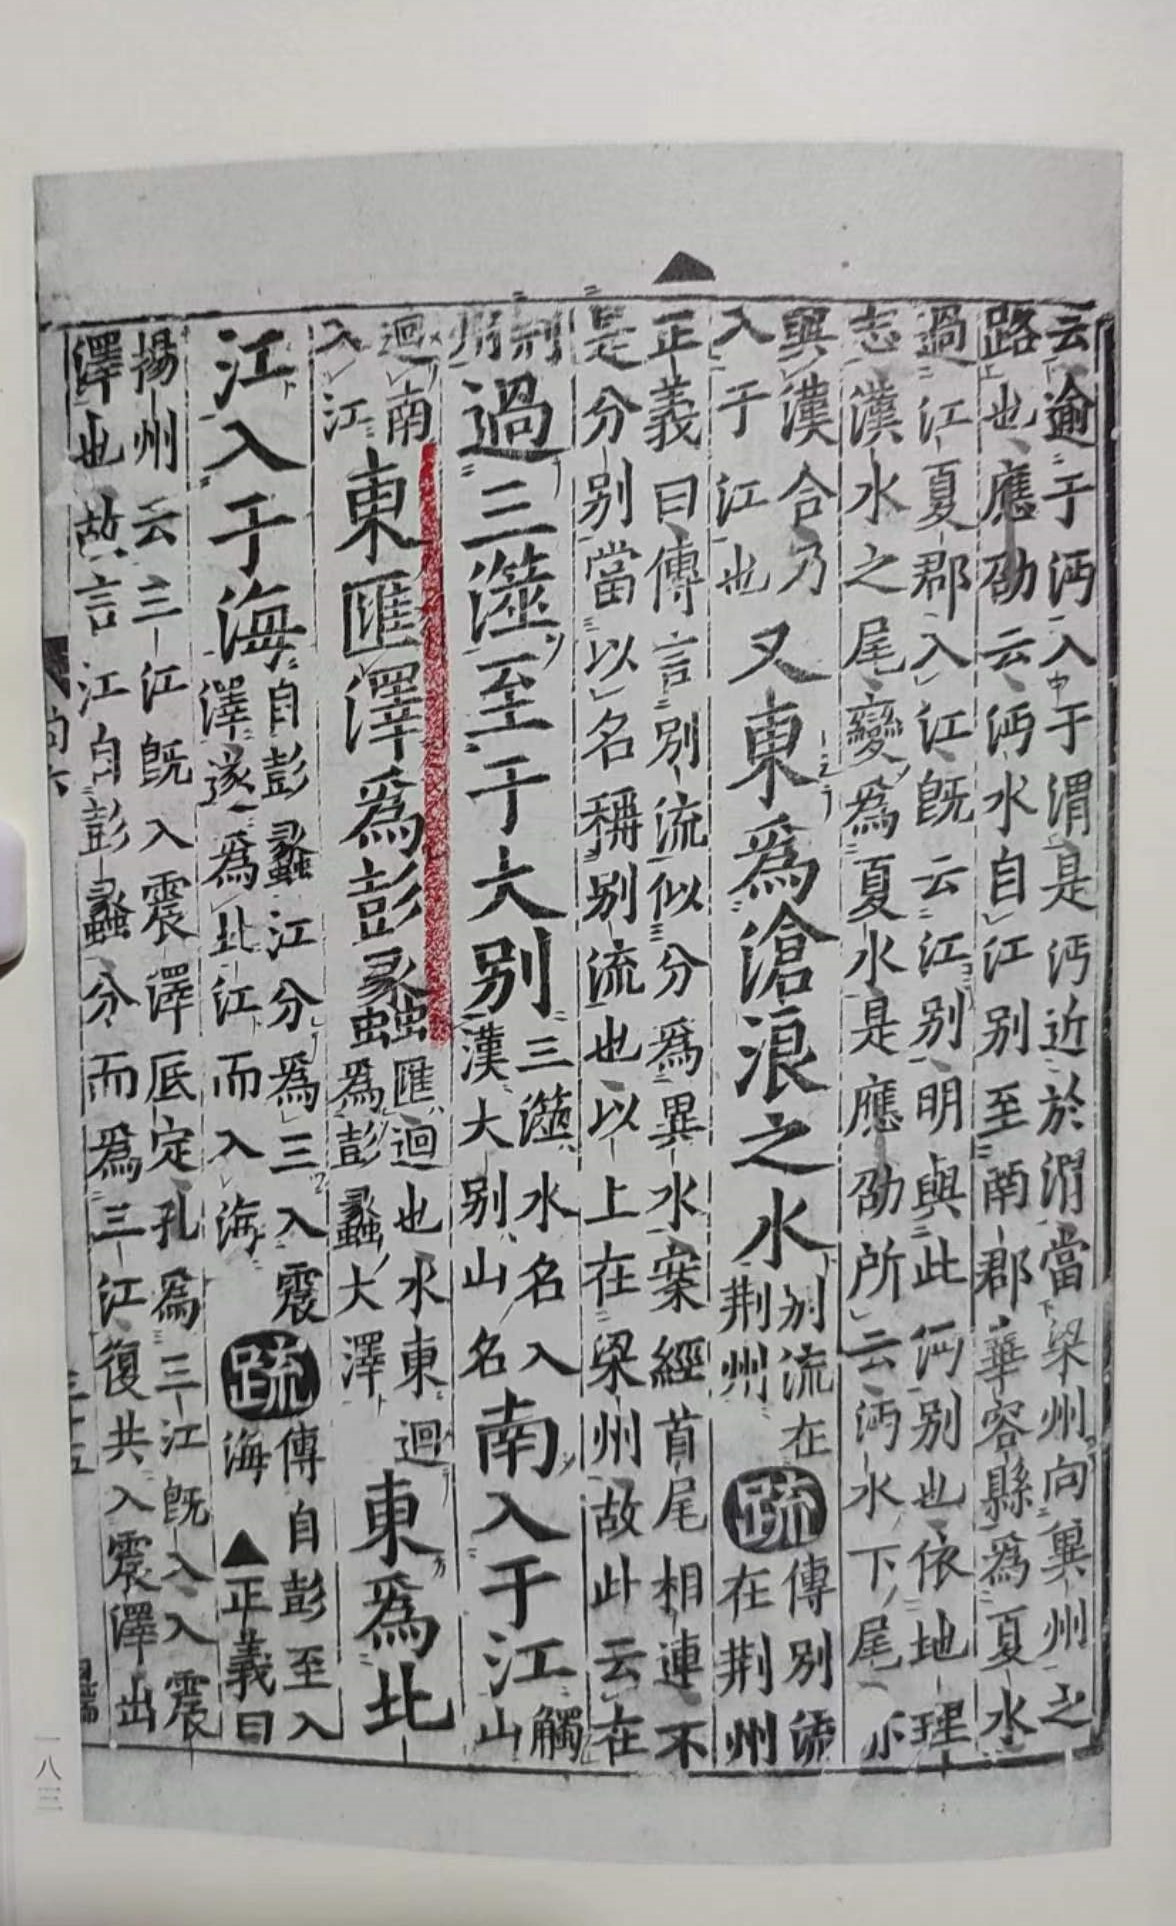 云逾于沔入于渭是沔近於渭當梁州向冀州之
路也應劭云沔水自江别至南郡華容縣爲夏水
過江夏郡入江既云江别明與此沔别也依地理
志漢水之尾變爲夏水是應劭所云沔水下尾亦
與漢合乃
入于江也
又東爲滄浪之水
别流在
荆州
疏
傳别流
在荆州
正義曰傳言别流似分爲異水案經首尾相連不
是分别當以名稱别流也以上在梁州故此云在
荆
州
過三澨至于大别
三澨水名入
漢大别山名
南入于江
觸
山
迴南
入江
東匯澤爲彭蠡
匯迴也水東迴
爲彭蠡大澤
東爲北
江入于海
自彭蠡江分爲三入震
澤遂爲北江而入海
疏
傳自彭至入
海
正義曰
揚州云三江既入震澤底定孔爲三江既入入震
澤也故言江自彭蠡分而爲三江復共入震澤出
三十五
一八三